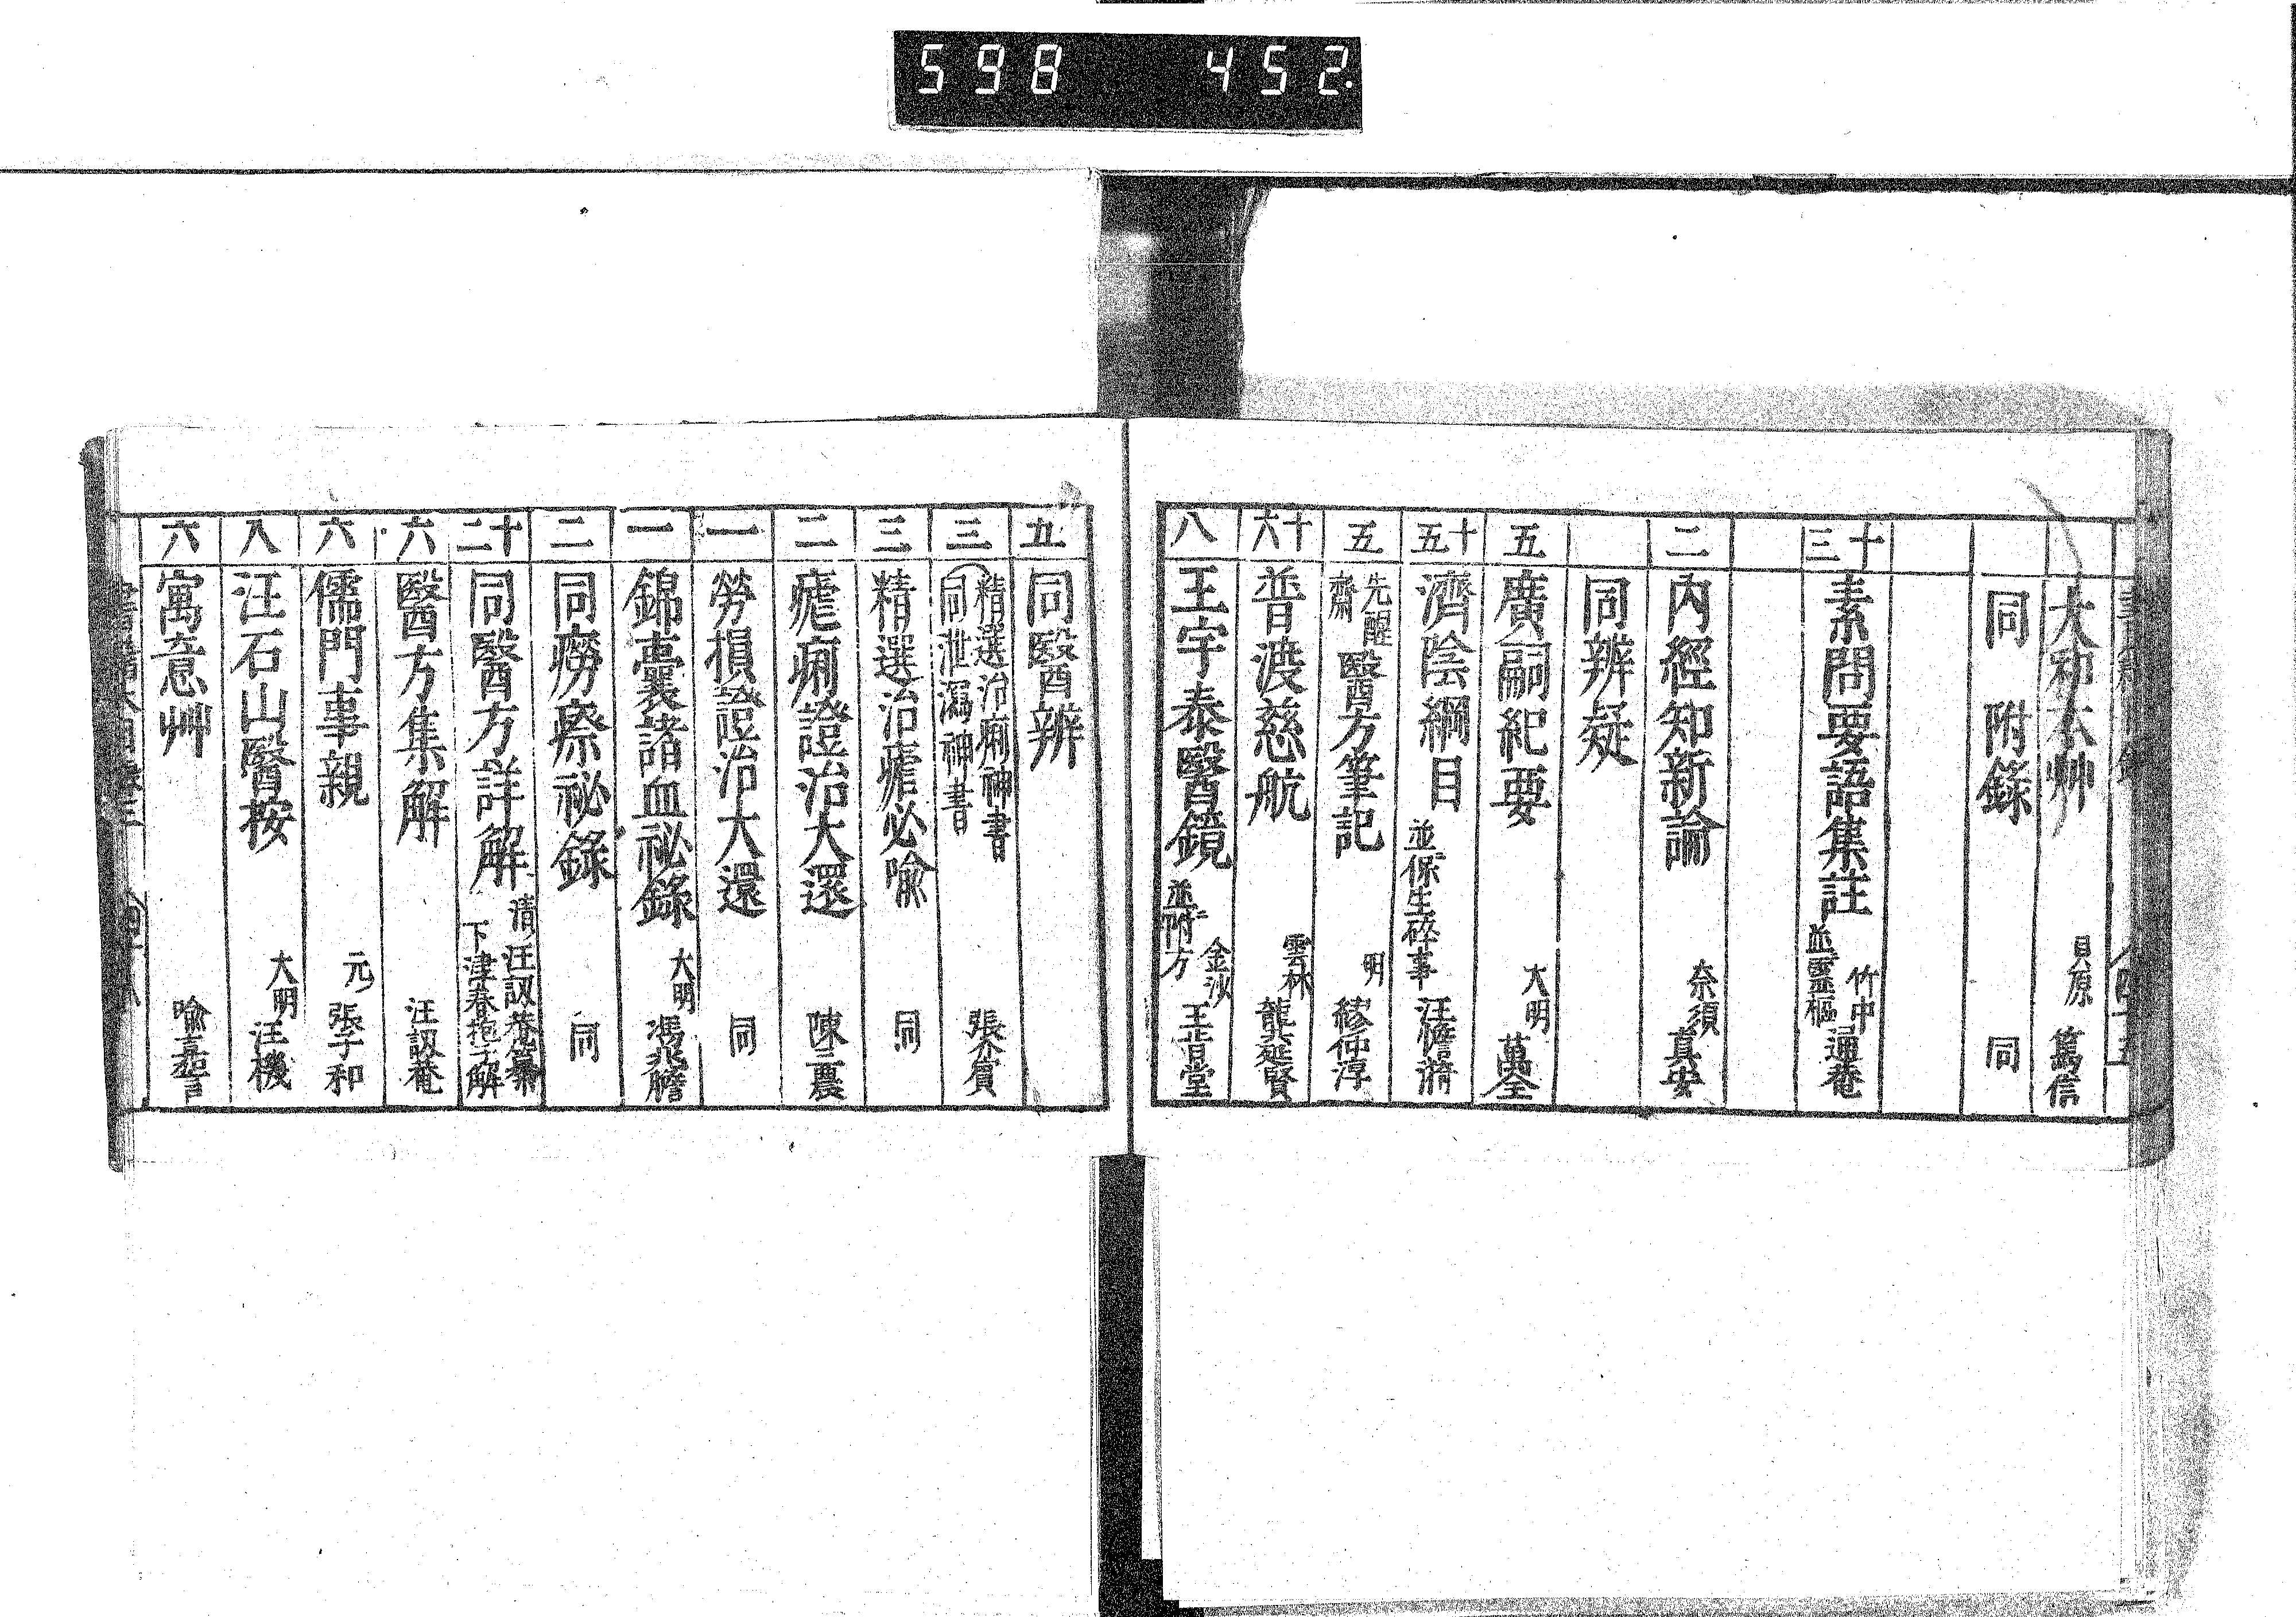 598 452.
大和本艸 貝原 篤信
同 附錄 同
十三 素問要語集註 並靈樞 竹中 通菴
二 內經知新論 奈須 真安
同辨疑
五 廣嗣紀要 大明 萬全
十五 濟陰綱目 並保生碎事 汪憺漪
五 先醒齋 醫方筆記 明 繆仲淳
十六 普渡慈航 雲林 龍延賢
八 王宇泰醫鏡 並附方 金沙 王肯堂
五 同醫辨
三 精選治痢神書 同泄瀉神書 張介賓
三 精選治瘧必喩 同
二 瘧痢證治大還 陳三農
一 勞損證治大還 同
一 錦囊諸血祕錄 大明 馮兆膽
二 同癆瘵祕錄 同
十二 同醫方詳解 清 汪訒菴纂 下津春抱子解
六 醫方集解 汪訒菴
六 儒門事親 元 張子和
八 汪石山醫按 大明 汪機
六 寓意艸 喻嘉言